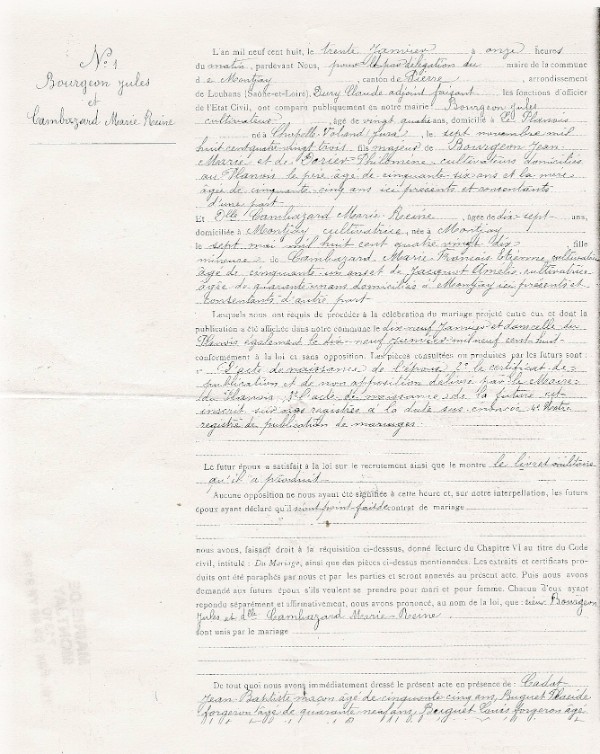 N° 1
Bourgeon Jules
et
Cambazard Marie Reine
L'an mil neuf cent huit, le trente Janvier à onze heures
du matin, pardevant Nous, pour et par délégation du maire de la commune
de Montjay, canton de Pierre, arrondissement
de Louhans (Saône-et-Loire), Dury Claude adjoint faisant les fonctions d'officier
de l'Etat Civil, ont comparu publiquement en notre mairie Bourgeon Jules
cultivateur, âgé de vingt quatre ans, domicilié à Le Planois
né à Chapelle Voland Jura, le sept novembre mil
huit cent quatre vingt trois, fils majeur de Bourgeon Jean
Marie et de Philomène cultivateurs domiciliés
au Planois le père âgé de cinquante six ans et la mère
âgée de cinquante cinq ans ici présents et consentants
d'une part
Et Dlle Cambazard Marie Reine, âgée de dix sept ans,
domiciliée à Montjay cultivatrice, née à Montjay
le sept mai mil huit cent quatre vingt dix fille
mineure de Cambazard Marie François Etienne, cultivateur
âgé de cinquante un ans et de Jacquot Amélie, cultivatrice
âgée de quarante un ans domiciliés à Montjay ici présents et
consentants d'autre part
Lesquels nous ont requis de procéder à la célébration du mariage projeté entre eux et dont la
publication a été affichée dans notre commune le dix neuf Janvier et dans celle du
Planois également le dix neuf Janvier mil neuf cent huit
conformément à la loi et sans opposition. Les pièces consultées ou produites par les futurs sont :
1° L'acte de naissance de l'époux, 2° le certificat de
publication et de non opposition délivré par le Maire
du Planois, 3° L'acte de naissance de la future est
inscrit sur nos registres à la date sus énoncée 4° Notre
registre de publication de mariages.
Le futur époux a satisfait à la loi sur le recrutement ainsi que le montre le livret militaire
qu'il a produit
Aucune opposition ne nous ayant été signifiée à cette heure et, sur notre interpellation, les futurs
époux ayant déclaré qu'il n'ont point fait de contrat de mariage
nous avons, faisant droit à la réquisition ci-desssus, donné lecture du Chapitre VI au titre du Code
civil, intitulé : Du Mariage, ainsi que des pièces ci-dessus mentionnées. Les extraits et certificats pro-
duits ont été paraphés par nous et par les parties et seront annexés au présent acte. Puis nous avons
demandé aux futurs époux s'ils veulent se prendre pour mari et pour femme. Chacun d'eux ayant
répondu séparément et affirmativement, nous avons prononcé, au nom de la loi, que : sieur Bourgeon
Jules et dlle Cambazard Marie Reine
sont unis par le mariage
De tout quoi nous avons immédiatement dressé le présent acte en présence de : Cadat
Jean Baptiste maçon âgé de cinquante cinq ans, Buguet Placide
forgeron âgé de quarante neuf ans, Buguet Louis forgeron âgé